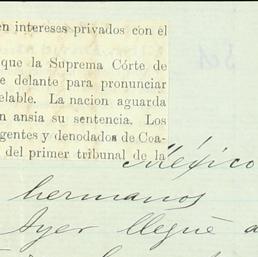 en intereses privados con el
que la Suprema Córte de
e delante para pronunciar
elable. La nacion aguarda
n ansia su sentencia. Los
gentes y denodados de Coa-
del primer tribunal de la
México
hermanos
Ayer llegué a